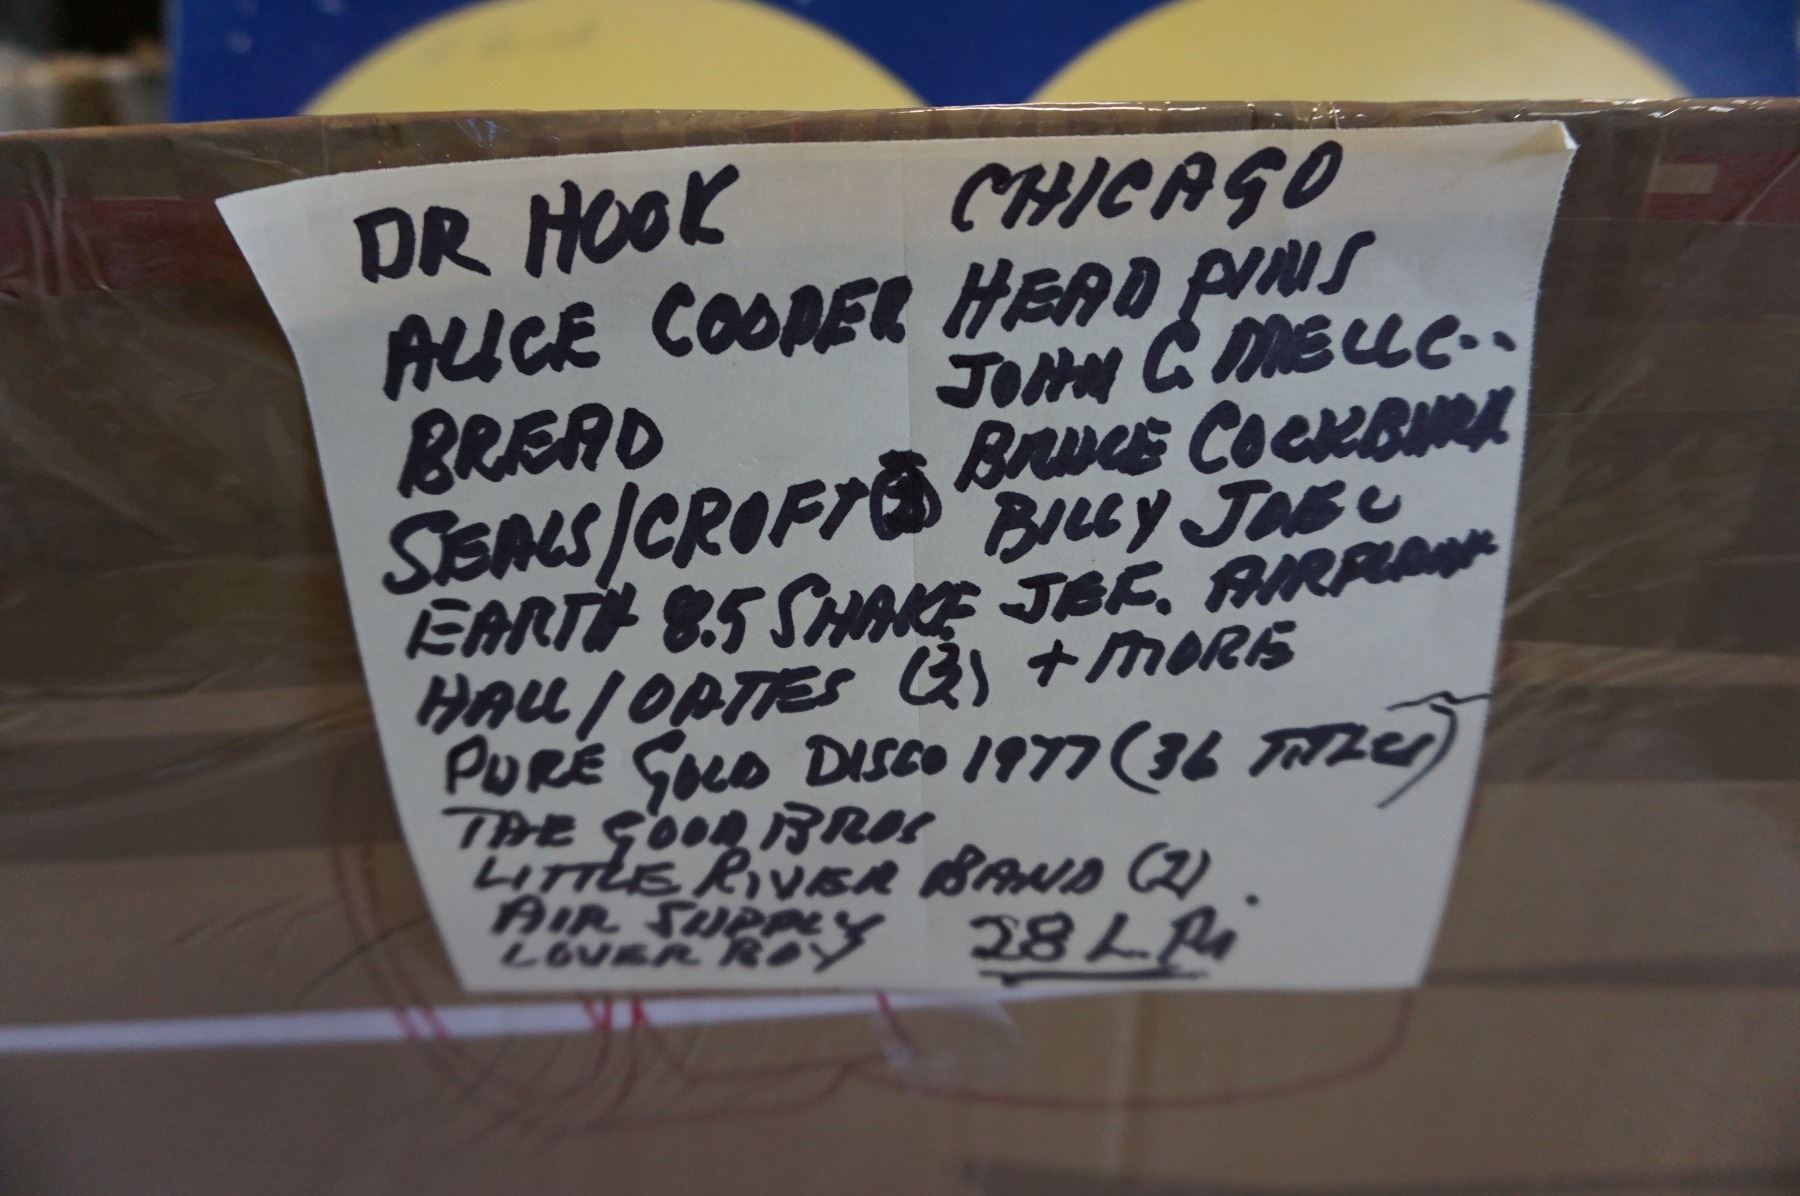 DR HOOK
ALICE COOPER
BREAD
SEALS/CROFT
EARTH 8.5 SHAKE
HALL/OATES (2)
CHICAGO
HEAD PINS
JOHN C. MELLC..
BRUCE COCKBURN
BILLY JOEL
JEF. AIRPLANE
+ MORE
PURE GOLD DISCO 1977 (36 TITLES)
THE GOOD BROS
LITTLE RIVER BAND (2)
AIR SUPPLY
LOVER BOY
28 L.Ps.